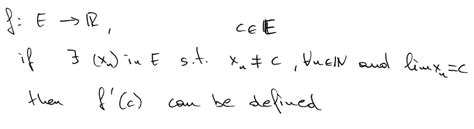 f: E → ℝ, c ∈ E
if ∃ (xₙ) in E s.t. xₙ ≠ c, ∀n∈ℕ and lim xₙ = c
then f'(c) can be defined